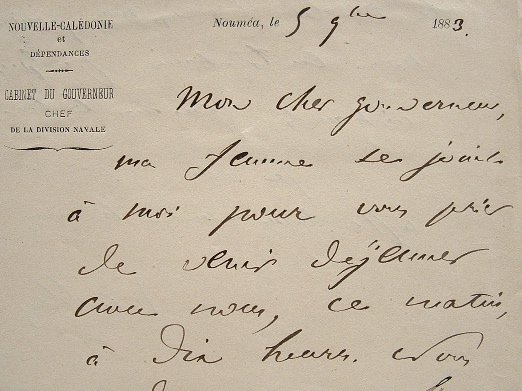 NOUVELLE-CALÉDONIE
et
DÉPENDANCES
CABINET DU GOUVERNEUR
CHEF
DE LA DIVISION NAVALE
Nouméa, le 5 9bre 1883.
Mon cher gouverneur,
ma femme se joint
à moi pour vous prier
de venir déjeuner
avec nous, ce matin,
à dix heures. Nous